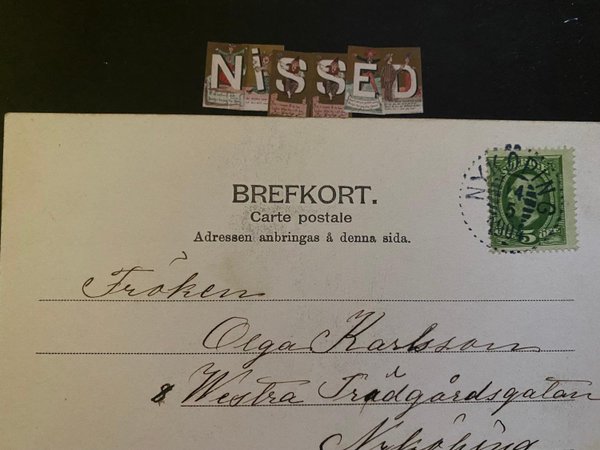 NiSSED
BREFKORT.
Carte postale
Adressen anbringas å denna sida.
NYKÖPING
5 ÖRE
Fröken
Olga Karlsson
8 Westra Trädgårdsgatan
Nyköping